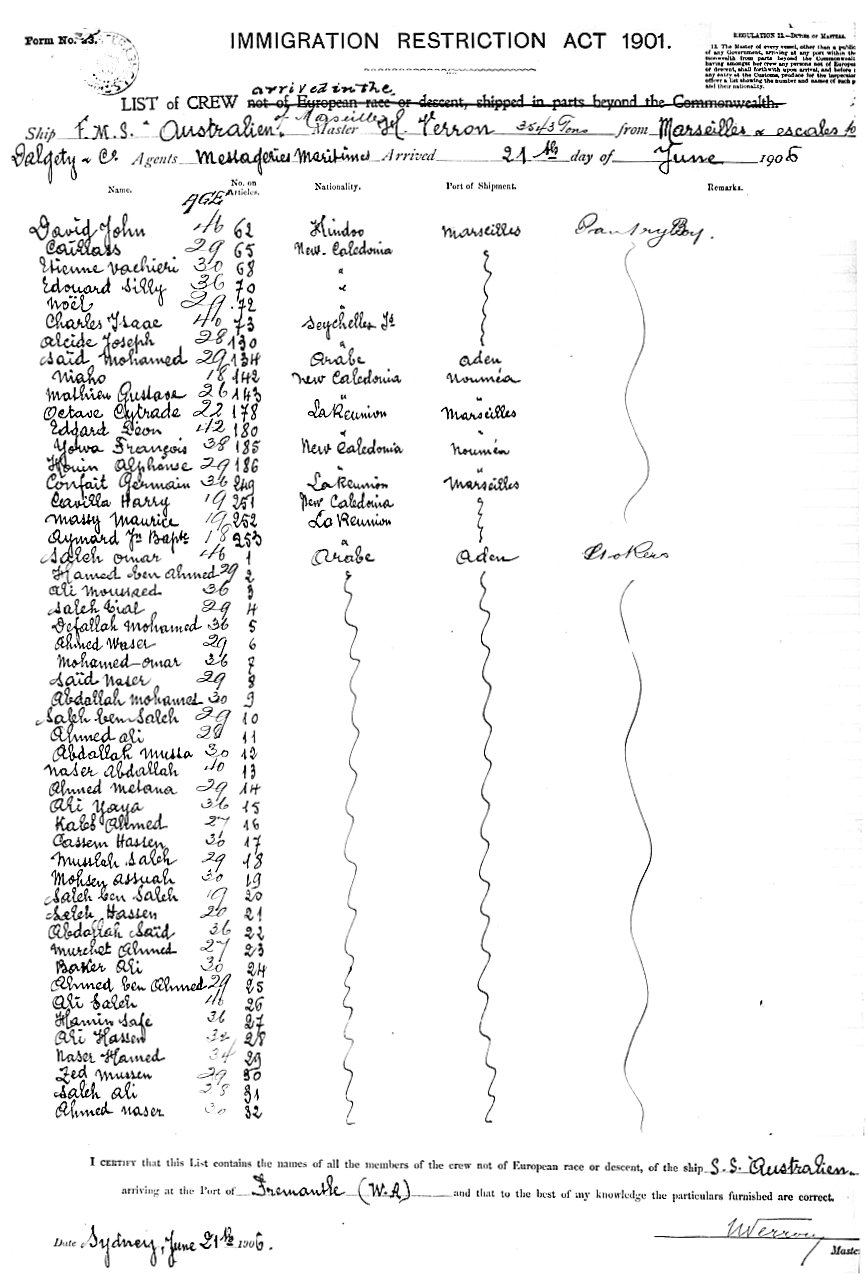 Form No. 23.
IMMIGRATION RESTRICTION ACT 1901.
REGULATION 12.—DUTIES OF MASTERS.
12. The Master of every vessel, other than a public
of any Government, arriving at any port within the
monwealth from parts beyond the Commonwealth
having amongst her crew any persons not of Europea
or descent, shall forthwith upon arrival, and before
any entry at the Customs, produce for the inspection
officer a list showing the number and names of such p
and their nationality.
arrived in the
LIST of CREW not of European race or descent, shipped in parts beyond the Commonwealth.
of Marseille
Ship F.M.S. "Australien". Master H. Verron 3543 Tons from Marseilles & escales to
Dalgety & Co. Agents Messageries Maritimes Arrived 21th day of June 1906
Name. AGE No. on Articles. Nationality. Port of Shipment. Remarks.
David John 46 62 Hindoo Marseilles Pantry Boy.
Caillass 29 65 New. Caledonia
Etienne Vachieri 30 68 "
Edouard Silly 36 70 "
Noël 29 72 "
Charles Isaac 40 73 Seychelles Is
Alcide Joseph 28 130 "
Saïd Mohamed 29 134 Arabe Aden
Niaho 18 142 New Caledonia Nouméa
Mathieu Gustave 26 143 " "
Octave Clytrade 22 178 La Reunion Marseilles
Edgard Léon 42 180 " "
Yowa François 38 185 New Caledonia Nouméa
Houin Alphonse 29 186 " "
Confait Germain 36 249 La Reunion Marseilles
Cavilla Harry 19 251 New Caledonia
Massy Maurice 19 252 La Reunion
Aymard Jn Bapte 18 253 "
Saleh Omar 46 1 Arabe Aden Stokers
Hamed ben Ahmed 29 2
Ali Moussaed 36 3
Saleh 29 4
Defallah Mohamed 36 5
Ahmed Waser 29 6
Mohamed-Omar 36 7
Saïd Naser 29 8
Abdallah Mohamed 30 9
Saleh ben Saleh 29 10
Ahmed Ali 28 11
Abdallah Mussa 30 12
Naser Abdallah 40 13
Ahmed Metana 29 14
Ali Yaya 36 15
Kaleb Ahmed 27 16
Cassem Hassen 36 17
Musslah Saleh 29 18
Mohsen Assuah 30 19
Saleh ben Saleh 19 20
Saleh Hassen 20 21
Abdallah Saïd 36 22
Murchet Ahmed 27 23
Baker Ali 30 24
Ahmed ben Ahmed 29 25
Ali Saleh 46 26
Hamin Safe 36 27
Ali Hassen 32 28
Naser Hamed 34 29
Zed Mussen 29 30
Saleh Ali 28 31
Ahmed Naser 30 32
I CERTIFY that this List contains the names of all the members of the crew not of European race or descent, of the ship S.S. "Australien"
arriving at the Port of Fremantle (W.A) and that to the best of my knowledge the particulars furnished are correct.
HVerron
Date Sydney, June 21th 1906. Master